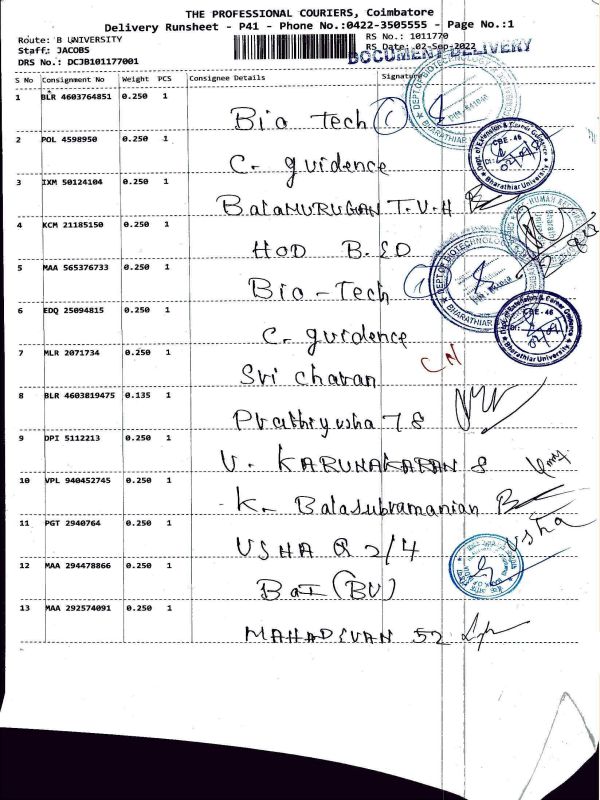 THE PROFESSIONAL COURIERS, Coimbatore
Delivery Runsheet - P41 - Phone No.:0422-3505555 - Page No.:1
Route: B UNIVERSITY
RS No.: 1011770
Staff: JACOBS
RS Date: 02-Sep-2022
DRS No.: DCJB101177001
DOCUMENT DELIVERY
S No Consignment No Weight PCS Consignee Details Signature
1 BLR 4603764851 0.250 1
Bio Tech 1
2 POL 4598950 0.250 1
C. guidence
3 IXM 50124104 0.250 1
BalaMURUGAN T.V.H
4 KCM 21185150 0.250 1
HOD B.ED
5 MAA 565376733 0.250 1
Bio-Tech 1
6 EDQ 25094815 0.250 1
C. guidence
7 MLR 2071734 0.250 1
Sri charan
8 BLR 4603819475 0.135 1
Prathiyusha 78
9 DPI 5112213 0.250 1
V. KARUNAKARAN 8
10 VPL 940452745 0.250 1
K. Balasubramanian
11 PGT 2940764 0.250 1
USHA Q 2/4 Usha
12 MAA 294478866 0.250 1
BOI (BU)
13 MAA 292574091 0.250 1
MAHADEVAN 52
DEPT OF BIOTECHNOLOGY
BHARATHIAR
PIN - 641046
Dept. of Extension & Career Guidance
CBE - 46
Bharathiar University
DEPT OF BIOTECHNOLOGY
BHARATHIAR
PIN - 641046
Dept. of Extension & Career Guidance
CBE - 46
Bharathiar University